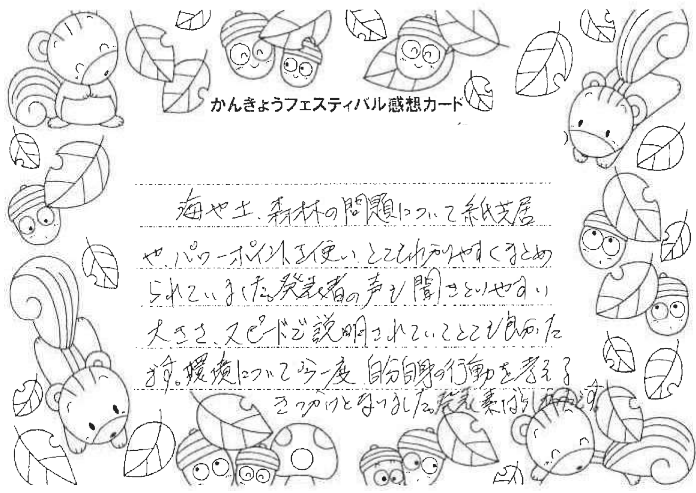 かんきょうフェスティバル感想カード
海や土、森林の問題について紙芝居
や、パワーポイントを使い とてもわかりやすくまとめ
られていました。発表者の声も聞きとりやすい
大きさ、スピードで説明されていてとても良かった
です。環境について今一度 自分自身の行動を考える
きっかけとなりました。発表